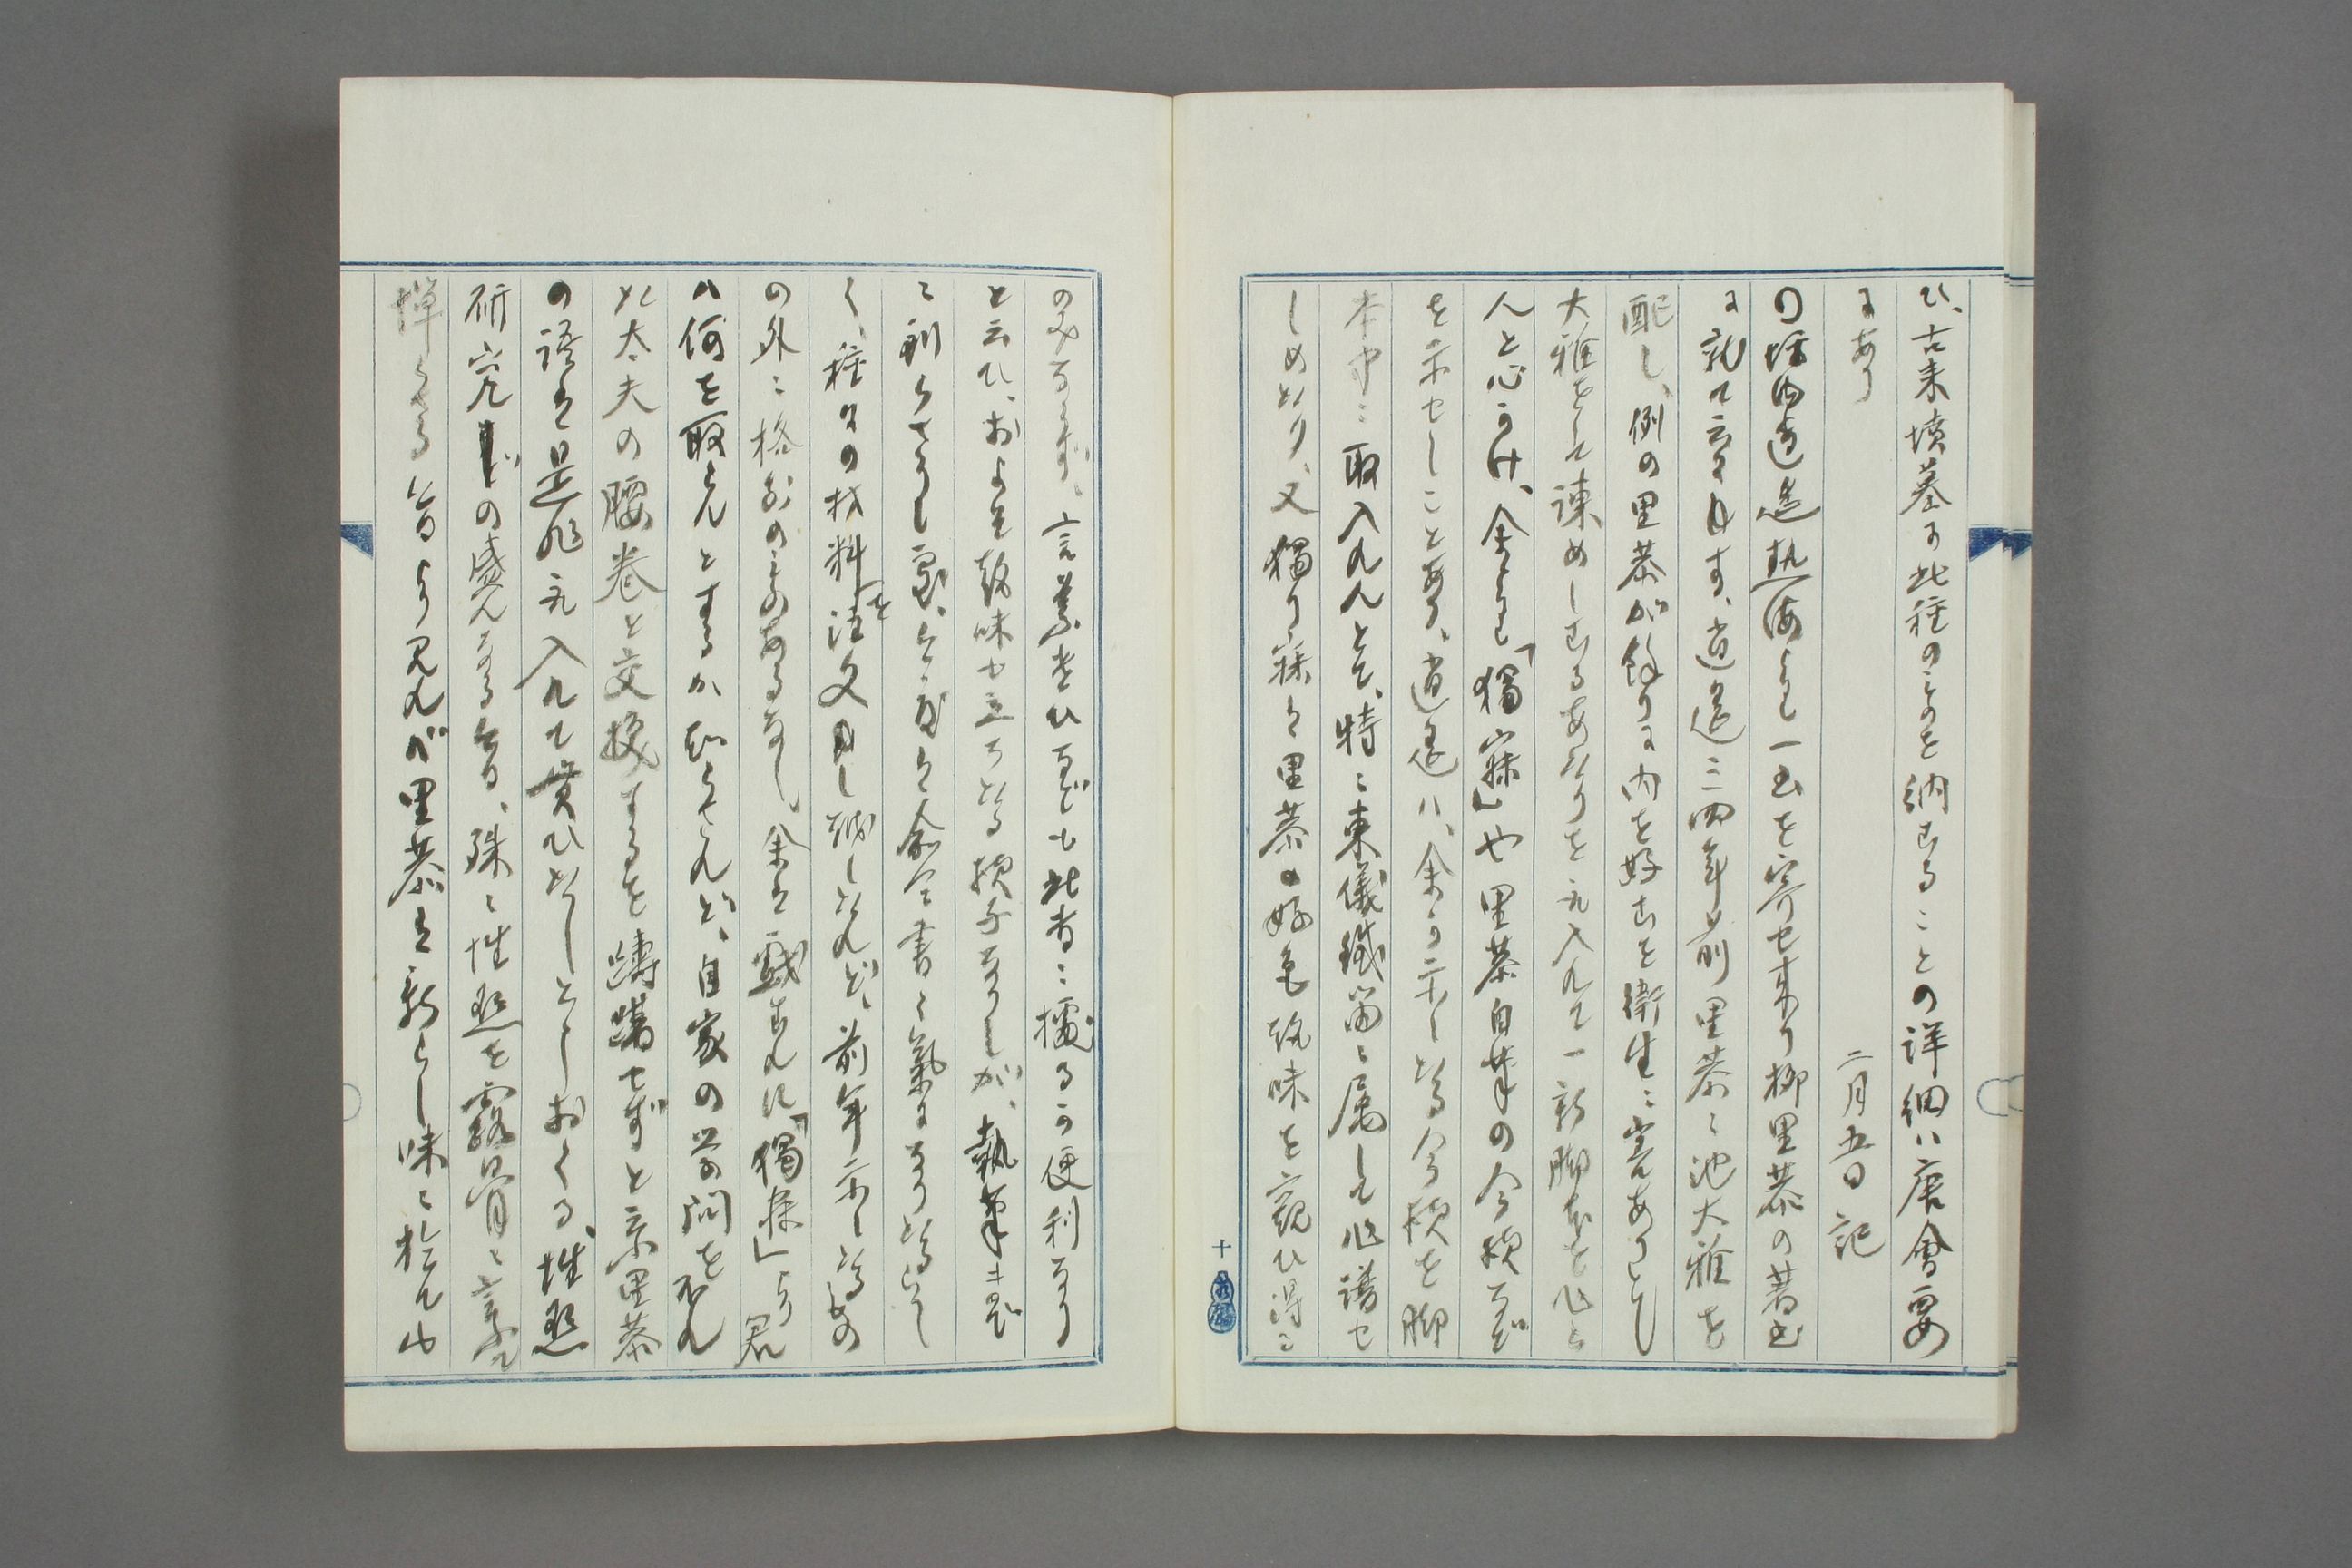 ひ、古来墳墓に此種のものを納むることの詳細ハ唐會要
にあり
二月五日記
〇坪内逍遥熱海より一書を寄せ来り柳里恭の著書
に就て云々す、逍遥三四年前里恭に池大雅を
配し、例の里恭が餘りに内を好むを衛生に害ありとし
大雅をして諫めしむるあたりを取入れて一新脚本を作ら
んと心かけ、余より「獨寐」や里恭自筆の今様など
を示せしことあり、逍遥ハ、余の示したる今様を脚
本中に取入れんとて、特に東儀鐵笛に属して作譜せ
しめたり、又獨り寐は里恭の好色趣味を窺ひ得る
のみならず、言葉遣ひなども此書に據るの便利なり
と云ひ、おおよそ趣味も立ちたる様子なりしが、執筆に及ば
に到らざりし
く、種々の材料を注文申し越したれど、前年示したるもの
の外に格別のものあるなし、余は戯むれに「獨寐」より君
ハ何を取らんとするか知らざれど、自家の学問を
太夫の腰巻と交換するを躊躇せずと云ふ里恭
の語は是非取入れて貰ひたしといしおくる、性慾
研究の盛んなる今日、殊に性慾を露骨に云ふを
憚らざる今日より見れバ里恭は新らし味に於てや
十